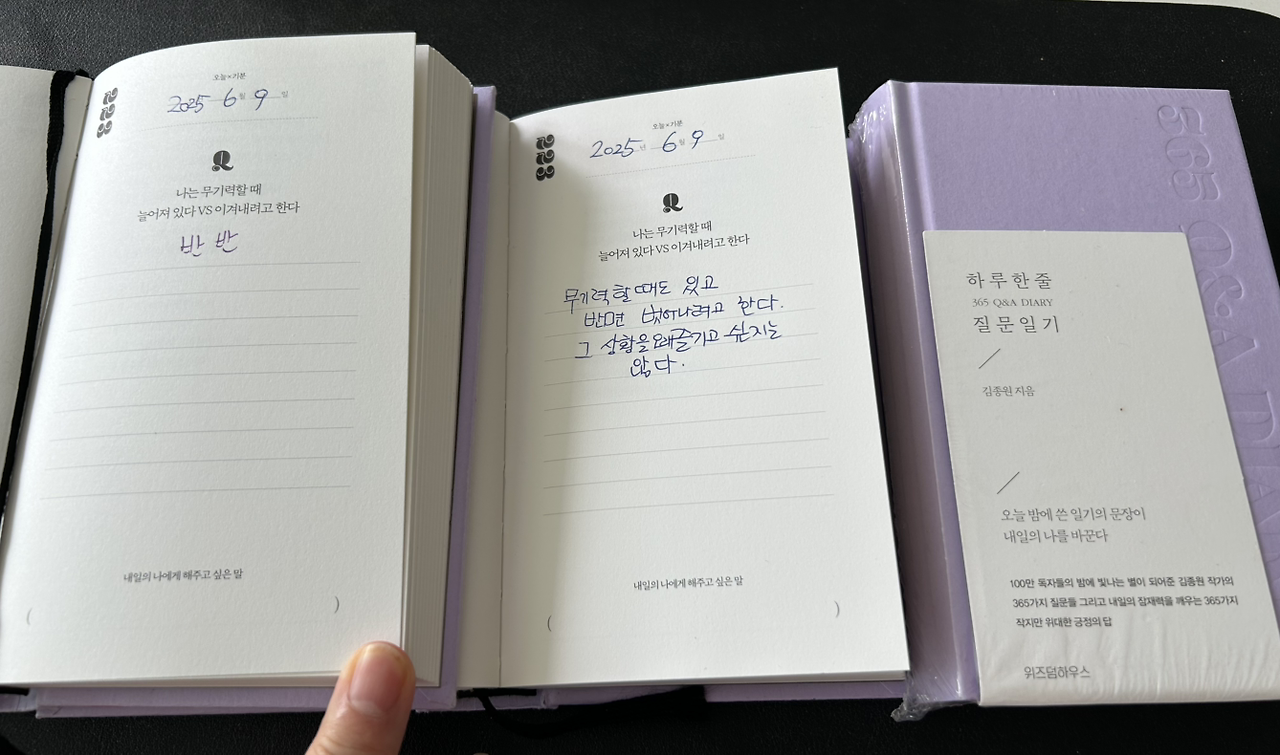 오늘×기분
223
2025 6월 9일
Q
나는 무기력할 때
늘어져 있다 VS 이겨내려고 한다
반 반
내일의 나에게 해주고 싶은 말
( )
오늘×기분
223
2025년 6월 9일
Q
나는 무기력할 때
늘어져 있다 VS 이겨내려고 한다
무기력할 때도 있고
반면 벗어나려고 한다.
그 상황을 오래 즐기고 싶지는
않다.
내일의 나에게 해주고 싶은 말
( )
365 Q&A DIA
하루 한 줄
365 Q&A DIARY
질문 일기
김종원 지음
오늘 밤에 쓴 일기의 문장이
내일의 나를 바꾼다
100만 독자들의 밤에 빛나는 별이 되어준 김종원 작가의
365가지 질문들 그리고 내일의 잠재력을 깨우는 365가지
작지만 위대한 긍정의 답
위즈덤하우스